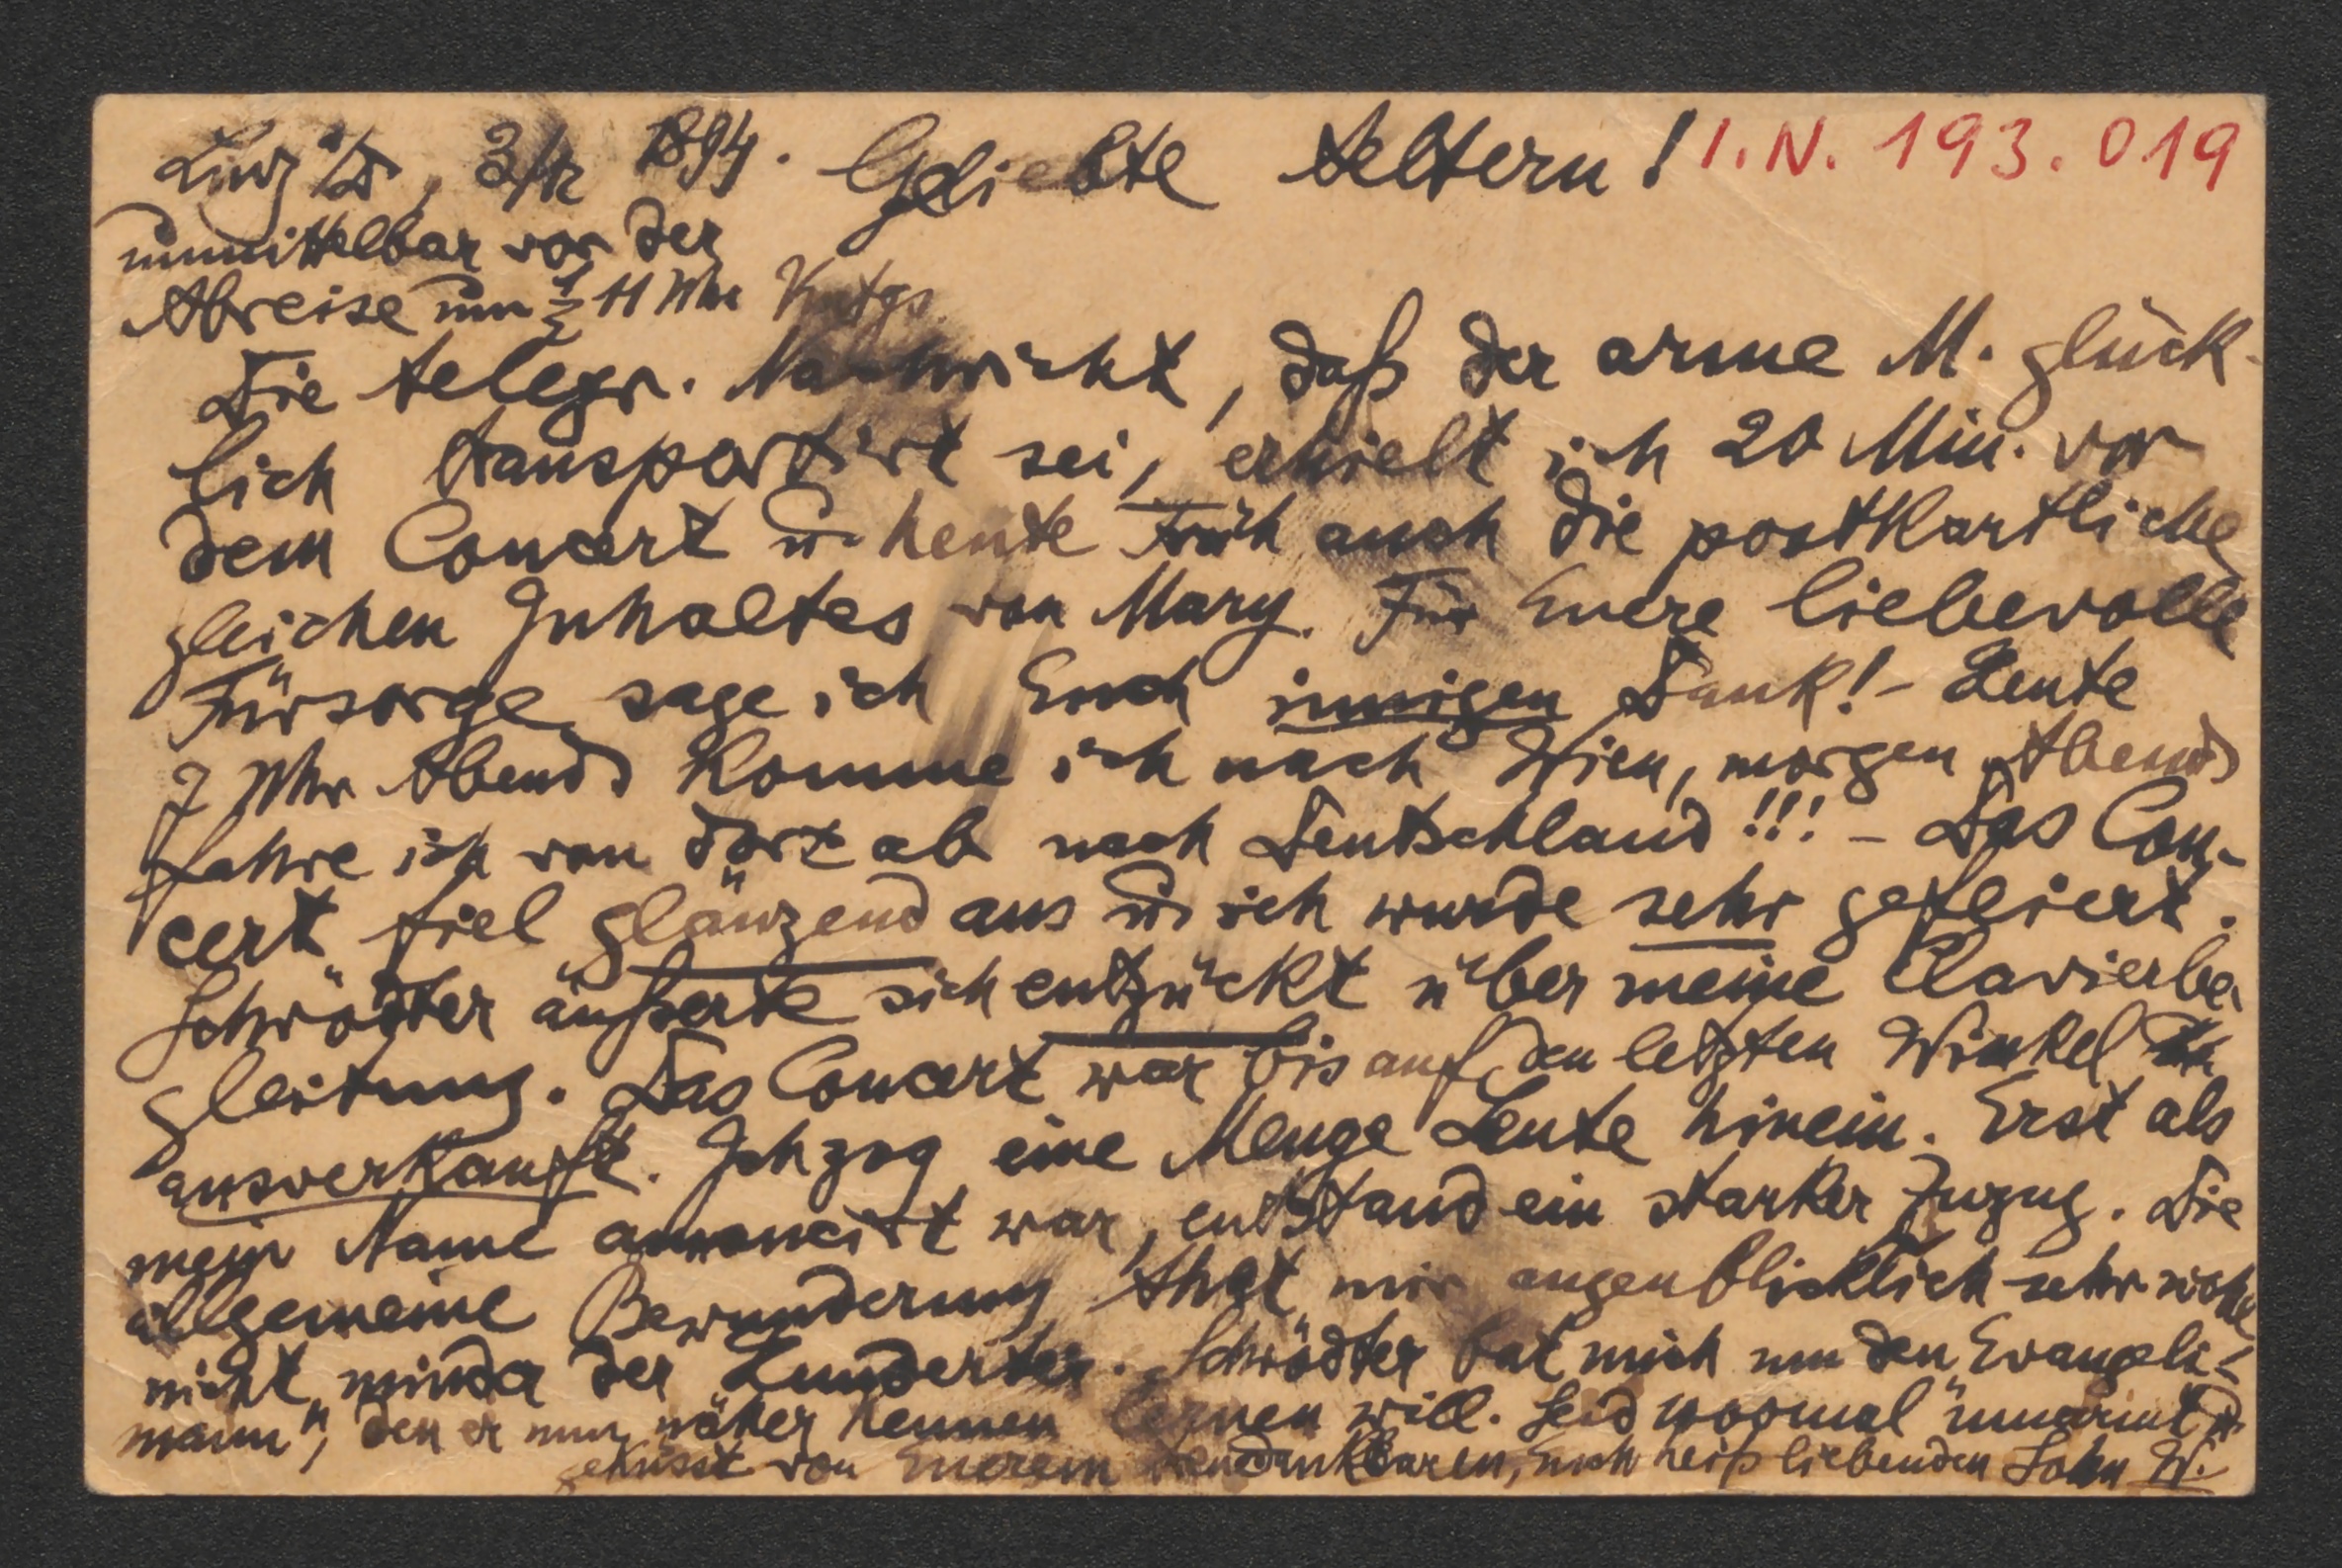 Linz a/D, 3/12 1894. Geliebte Aeltern! I.N. 193.019
unmittelbar vor der
Abreise um ½ 11 Uhr Vmtgs.
Die telegr. Nachricht, daß der arme M. glück-
lich transportirt sei, erhielt ich 20 Min. vor
dem Concert u. heute Früh auch die postkartliche
gleichen Inhaltes von Mary. Für Euere liebevolle
Fürsorge sage ich Euch innigen Dank! – Heute
7 Uhr Abends komme ich nach Wien, morgen Abends
fahre ich von dort ab nach Deutschland!!! – Das Con-
cert fiel glänzend aus u. ich wurde sehr gefeiert.
Schrödter äußerte sich entzückt über meine Clavierbe
gleitung. Das Concert war bis auf den letzten Winkel
ausverkauft. Ich zog eine Menge Leute hinein. Erst als
mein Name annoncirt war, entstand ein starker Zuzug. Die
allgemeine Bewunderung that mir augenblicklich sehr wohl
nicht minder der Hunderter. Schrödter bat mich um den „Evangeli-
mann", den er nun näher kennen lernen will. Seid umarmt u.
geküsst von Euerem dankbaren, Euch heiß liebenden Sohn W.